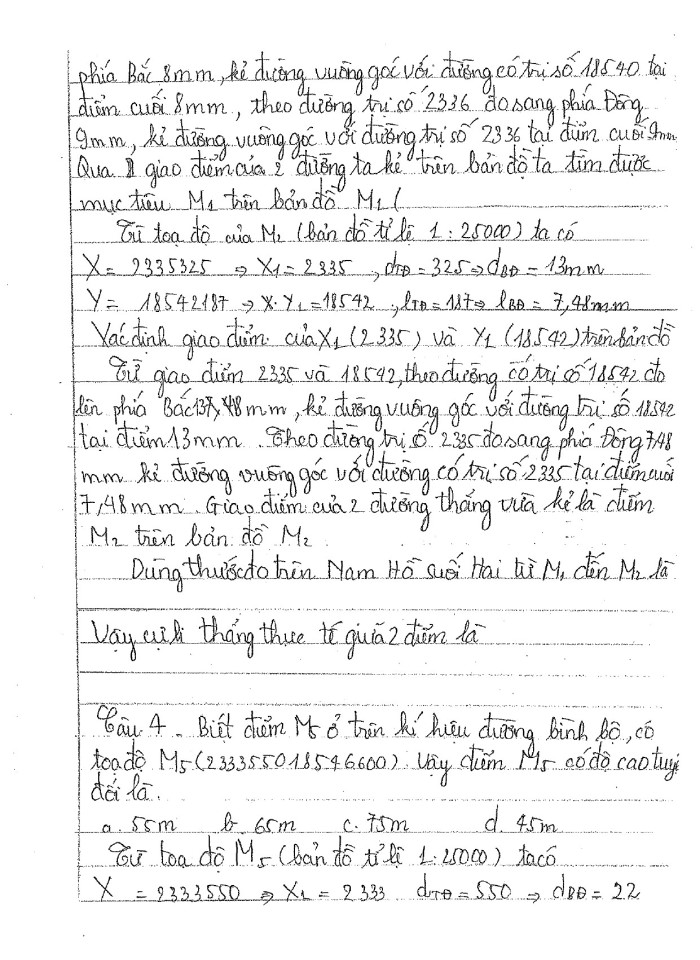 phía Bắc 8mm, kẻ đường vuông góc với đường có trị số 18540 tại
điểm cuối 8mm, theo đường trị số 2336 đo sang phía Đông
9mm, kẻ đường vuông góc với đường trị số 2336 tại điểm cuối 9mm
Qua giao điểm của 2 đường ta kẻ trên bản đồ ta tìm được
mục tiêu M1 trên bản đồ M1 (
Từ toạ độ của M2 (bản đồ tỉ lệ 1:25000) ta có
X = 2335325 ⇒ X1 = 2335, dTĐ = 325 ⇒ dBĐ = 13mm
Y = 18542187 ⇒ X. Y1 = 18542, lTĐ = 187 ⇒ lBĐ = 7,48mm
Xác định giao điểm của X1 (2335) và Y1 (18542) trên bản đồ
Từ giao điểm 2335 và 18542, theo đường có trị số 18542 đo
lên phía Bắc 137,48mm, kẻ đường vuông góc với đường trị số 18542
tại điểm 13mm. Theo đường trị số 2335 đo sang phía Đông 7,48
mm kẻ đường vuông góc với đường có trị số 2335 tại điểm cuối
7,48mm. Giao điểm của 2 đường thẳng vừa kẻ là điểm
M2 trên bản đồ M2
Dùng thước đo trên Nam Hồ suối Hai từ M1 đến M2 là
Vậy cự li thẳng thực tế giữa 2 điểm là
Câu 4. Biết điểm M5 ở trên kí hiệu đường bình bộ, có
toạ độ M5 (2333550 18546600). Vậy điểm M5 có độ cao tuyệ
đối là.
a. 55m b. 65m c. 75m d. 45m
Từ toạ độ M5 (bản đồ tỉ lệ 1:25000) ta có
X = 2333550 ⇒ X1 = 2333 dTĐ = 550 ⇒ dBĐ = 22